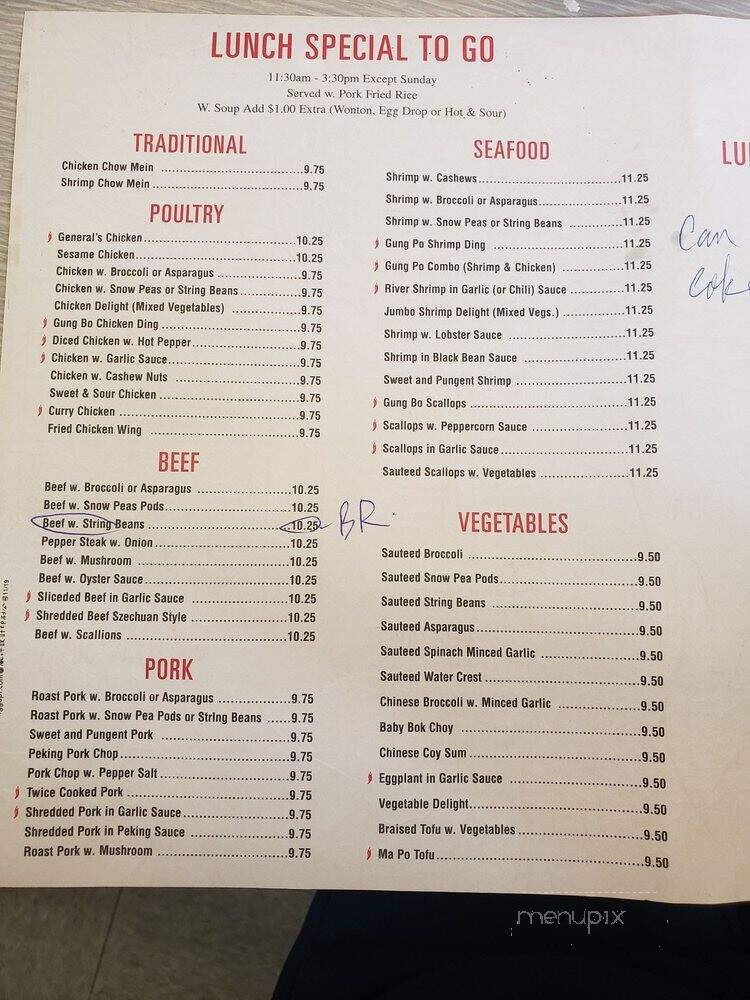 LUNCH SPECIAL TO GO
11:30am - 3:30pm Except Sunday
Served w. Pork Fried Rice
W. Soup Add $1.00 Extra (Wonton, Egg Drop or Hot & Sour)
TRADITIONAL
Chicken Chow Mein 9.75
Shrimp Chow Mein 9.75
POULTRY
General's Chicken 10.25
Sesame Chicken 10.25
Chicken w. Broccoli or Asparagus 9.75
Chicken w. Snow Peas or String Beans 9.75
Chicken Delight (Mixed Vegetables) 9.75
Gung Bo Chicken Ding 9.75
Diced Chicken w. Hot Pepper 9.75
Chicken w. Garlic Sauce 9.75
Chicken w. Cashew Nuts 9.75
Sweet & Sour Chicken 9.75
Curry Chicken 9.75
Fried Chicken Wing 9.75
BEEF
Beef w. Broccoli or Asparagus 10.25
Beef w. Snow Peas Pods 10.25
Beef w. String Beans 10.25 BR.
Pepper Steak w. Onion 10.25
Beef w. Mushroom 10.25
Beef w. Oyster Sauce 10.25
Sliceded Beef in Garlic Sauce 10.25
Shredded Beef Szechuan Style 10.25
Beef w. Scallions 10.25
PORK
Roast Pork w. Broccoli or Asparagus 9.75
Roast Pork w. Snow Pea Pods or String Beans 9.75
Sweet and Pungent Pork 9.75
Peking Pork Chop 9.75
Pork Chop w. Pepper Salt 9.75
Twice Cooked Pork 9.75
Shredded Pork in Garlic Sauce 9.75
Shredded Pork in Peking Sauce 9.75
Roast Pork w. Mushroom 9.75
SEAFOOD
Shrimp w. Cashews 11.25
Shrimp w. Broccoli or Asparagus 11.25
Shrimp w. Snow Peas or String Beans 11.25
Gung Po Shrimp Ding 11.25
Gung Po Combo (Shrimp & Chicken) 11.25
River Shrimp in Garlic (or Chili) Sauce 11.25
Jumbo Shrimp Delight (Mixed Vegs.) 11.25
Shrimp w. Lobster Sauce 11.25
Shrimp in Black Bean Sauce 11.25
Sweet and Pungent Shrimp 11.25
Gung Bo Scallops 11.25
Scallops w. Peppercorn Sauce 11.25
Scallops in Garlic Sauce 11.25
Sauteed Scallops w. Vegetables 11.25
VEGETABLES
Sauteed Broccoli 9.50
Sauteed Snow Pea Pods 9.50
Sauteed String Beans 9.50
Sauteed Asparagus 9.50
Sauteed Spinach Minced Garlic 9.50
Sauteed Water Crest 9.50
Chinese Broccoli w. Minced Garlic 9.50
Baby Bok Choy 9.50
Chinese Coy Sum 9.50
Eggplant in Garlic Sauce 9.50
Vegetable Delight 9.50
Braised Tofu w. Vegetables 9.50
Ma Po Tofu 9.50
LU
Can
coke
menupix